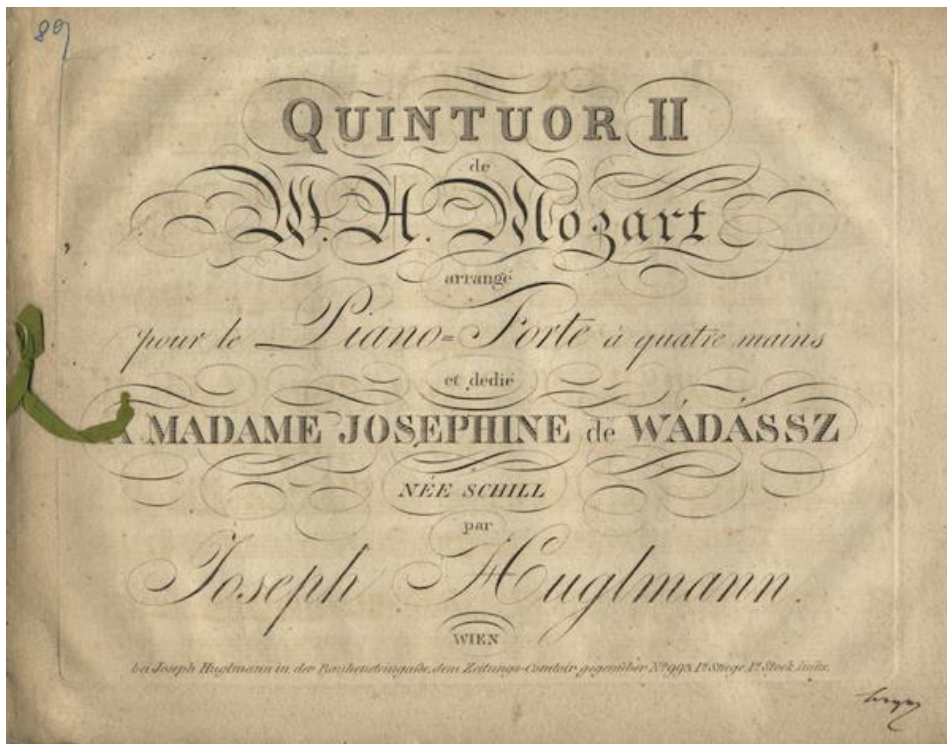 89
QUINTUOR II
de
W. A. Mozart
arrangé
pour le Piano=Forte à quatre mains
et dedié
A MADAME JOSEPHINE de WÁDÁSSZ
NÉE SCHILL
par
Joseph Huglmann.
WIEN
bei Joseph Huglmann in der Rauhensteingaße, dem Zeitungs-Comtoir gegenüber No. 993. 1te Stiege, 1ter Stock links.